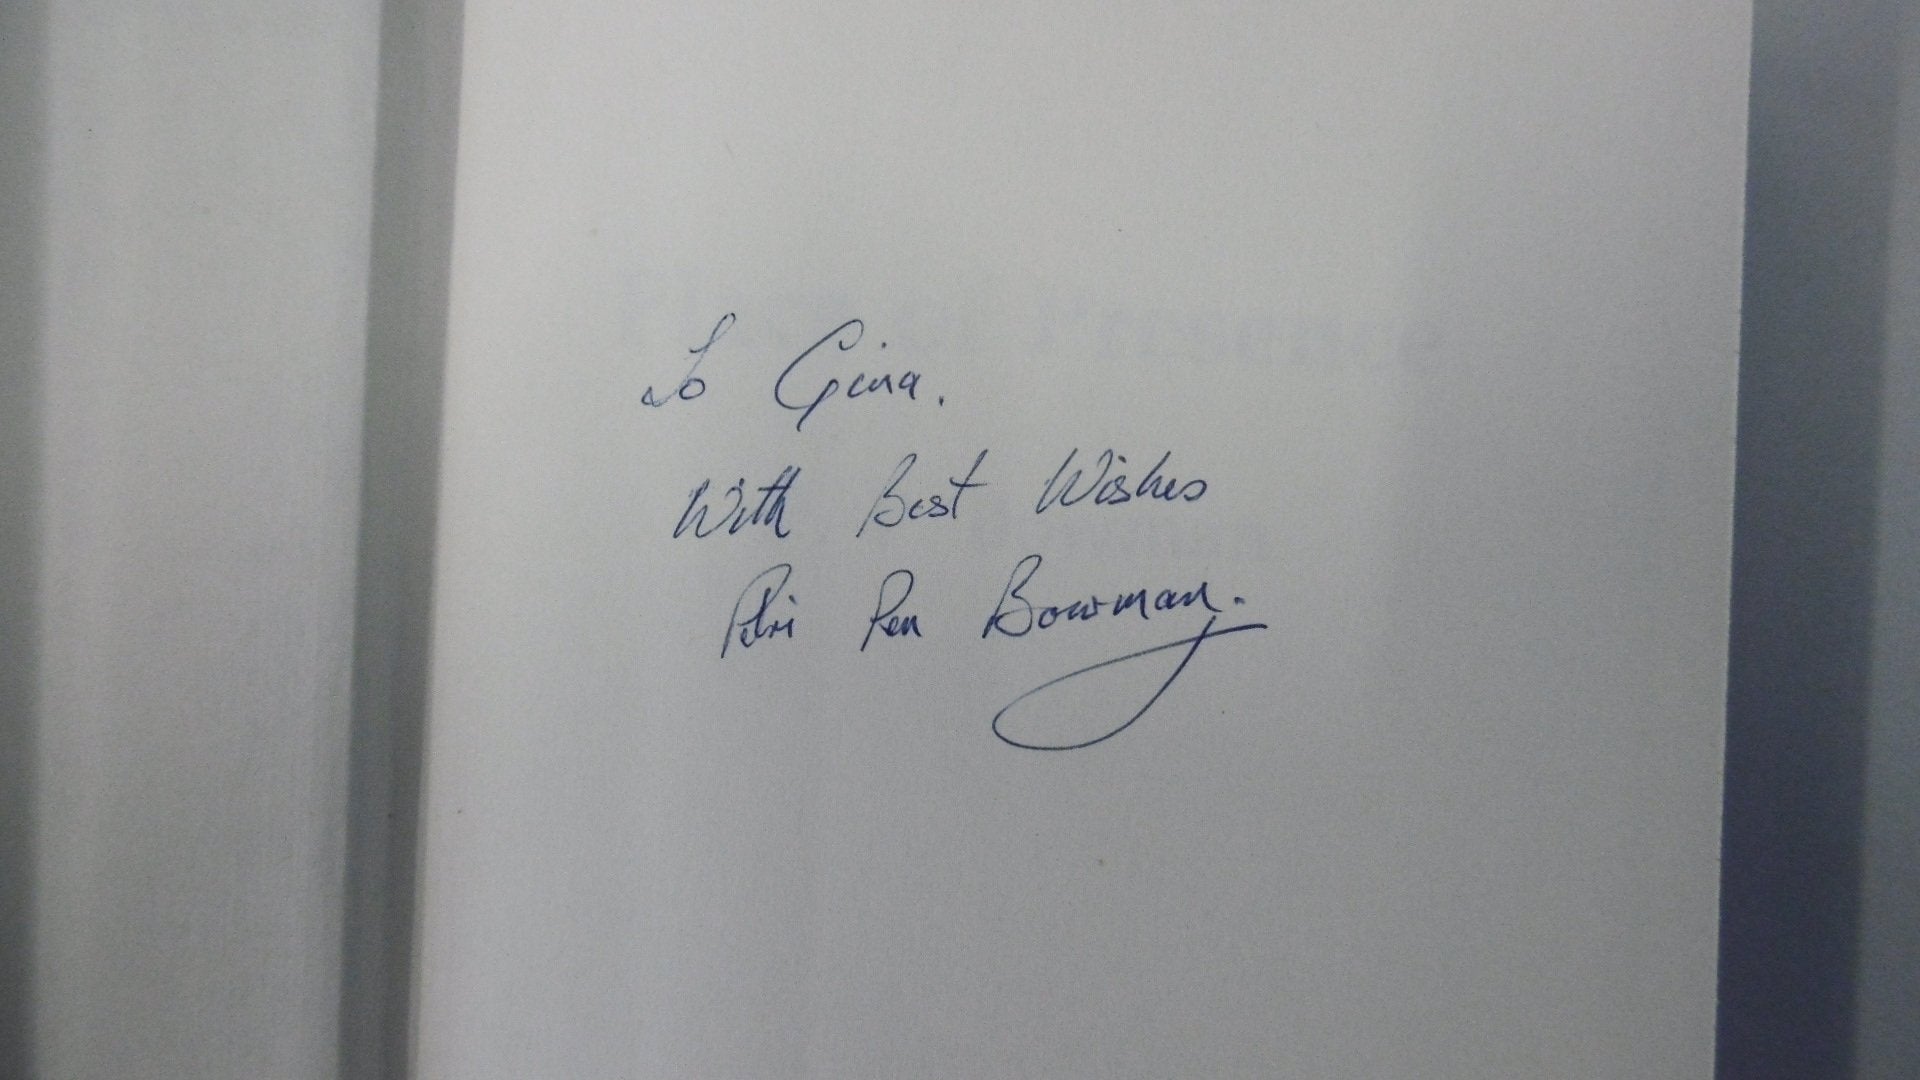 To Gina.
With Best Wishes
Petri Pen Bowman.